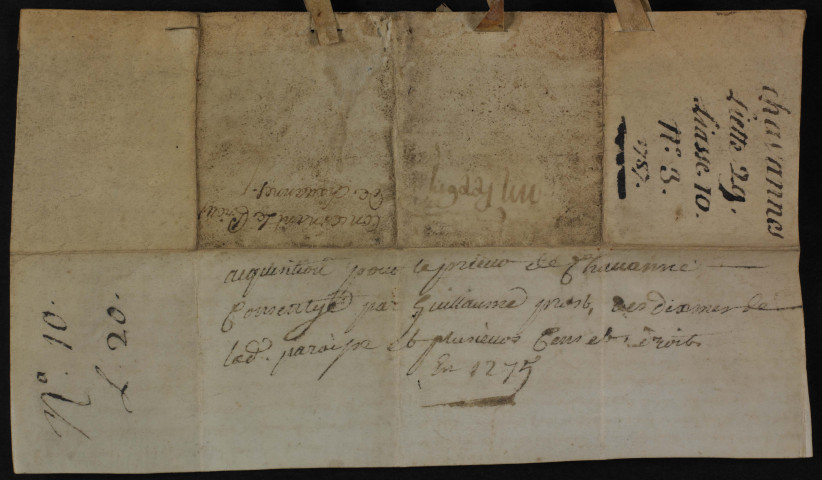 chavannes
Liette 29.
Liasse 10.
N.° 3.
1787.
Concernant Le Prieur
De Chavannes
acquisition pour le prieur de Chavanne
Consentye par Guillaume prost, des dixmes de
lad. paroisse et plusieurs Cens et Droits
En 1275
N.° 10.
L. 20.